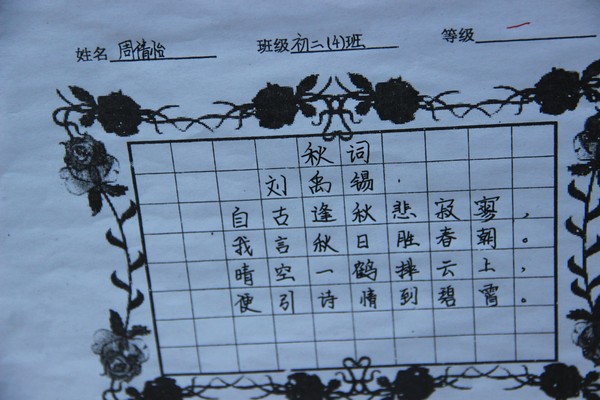 姓名 周倩怡 班级 初二(4)班 等级
秋词
刘禹锡
自古逢秋悲寂寥，
我言秋日胜春朝。
晴空一鹤排云上，
便引诗情到碧霄。